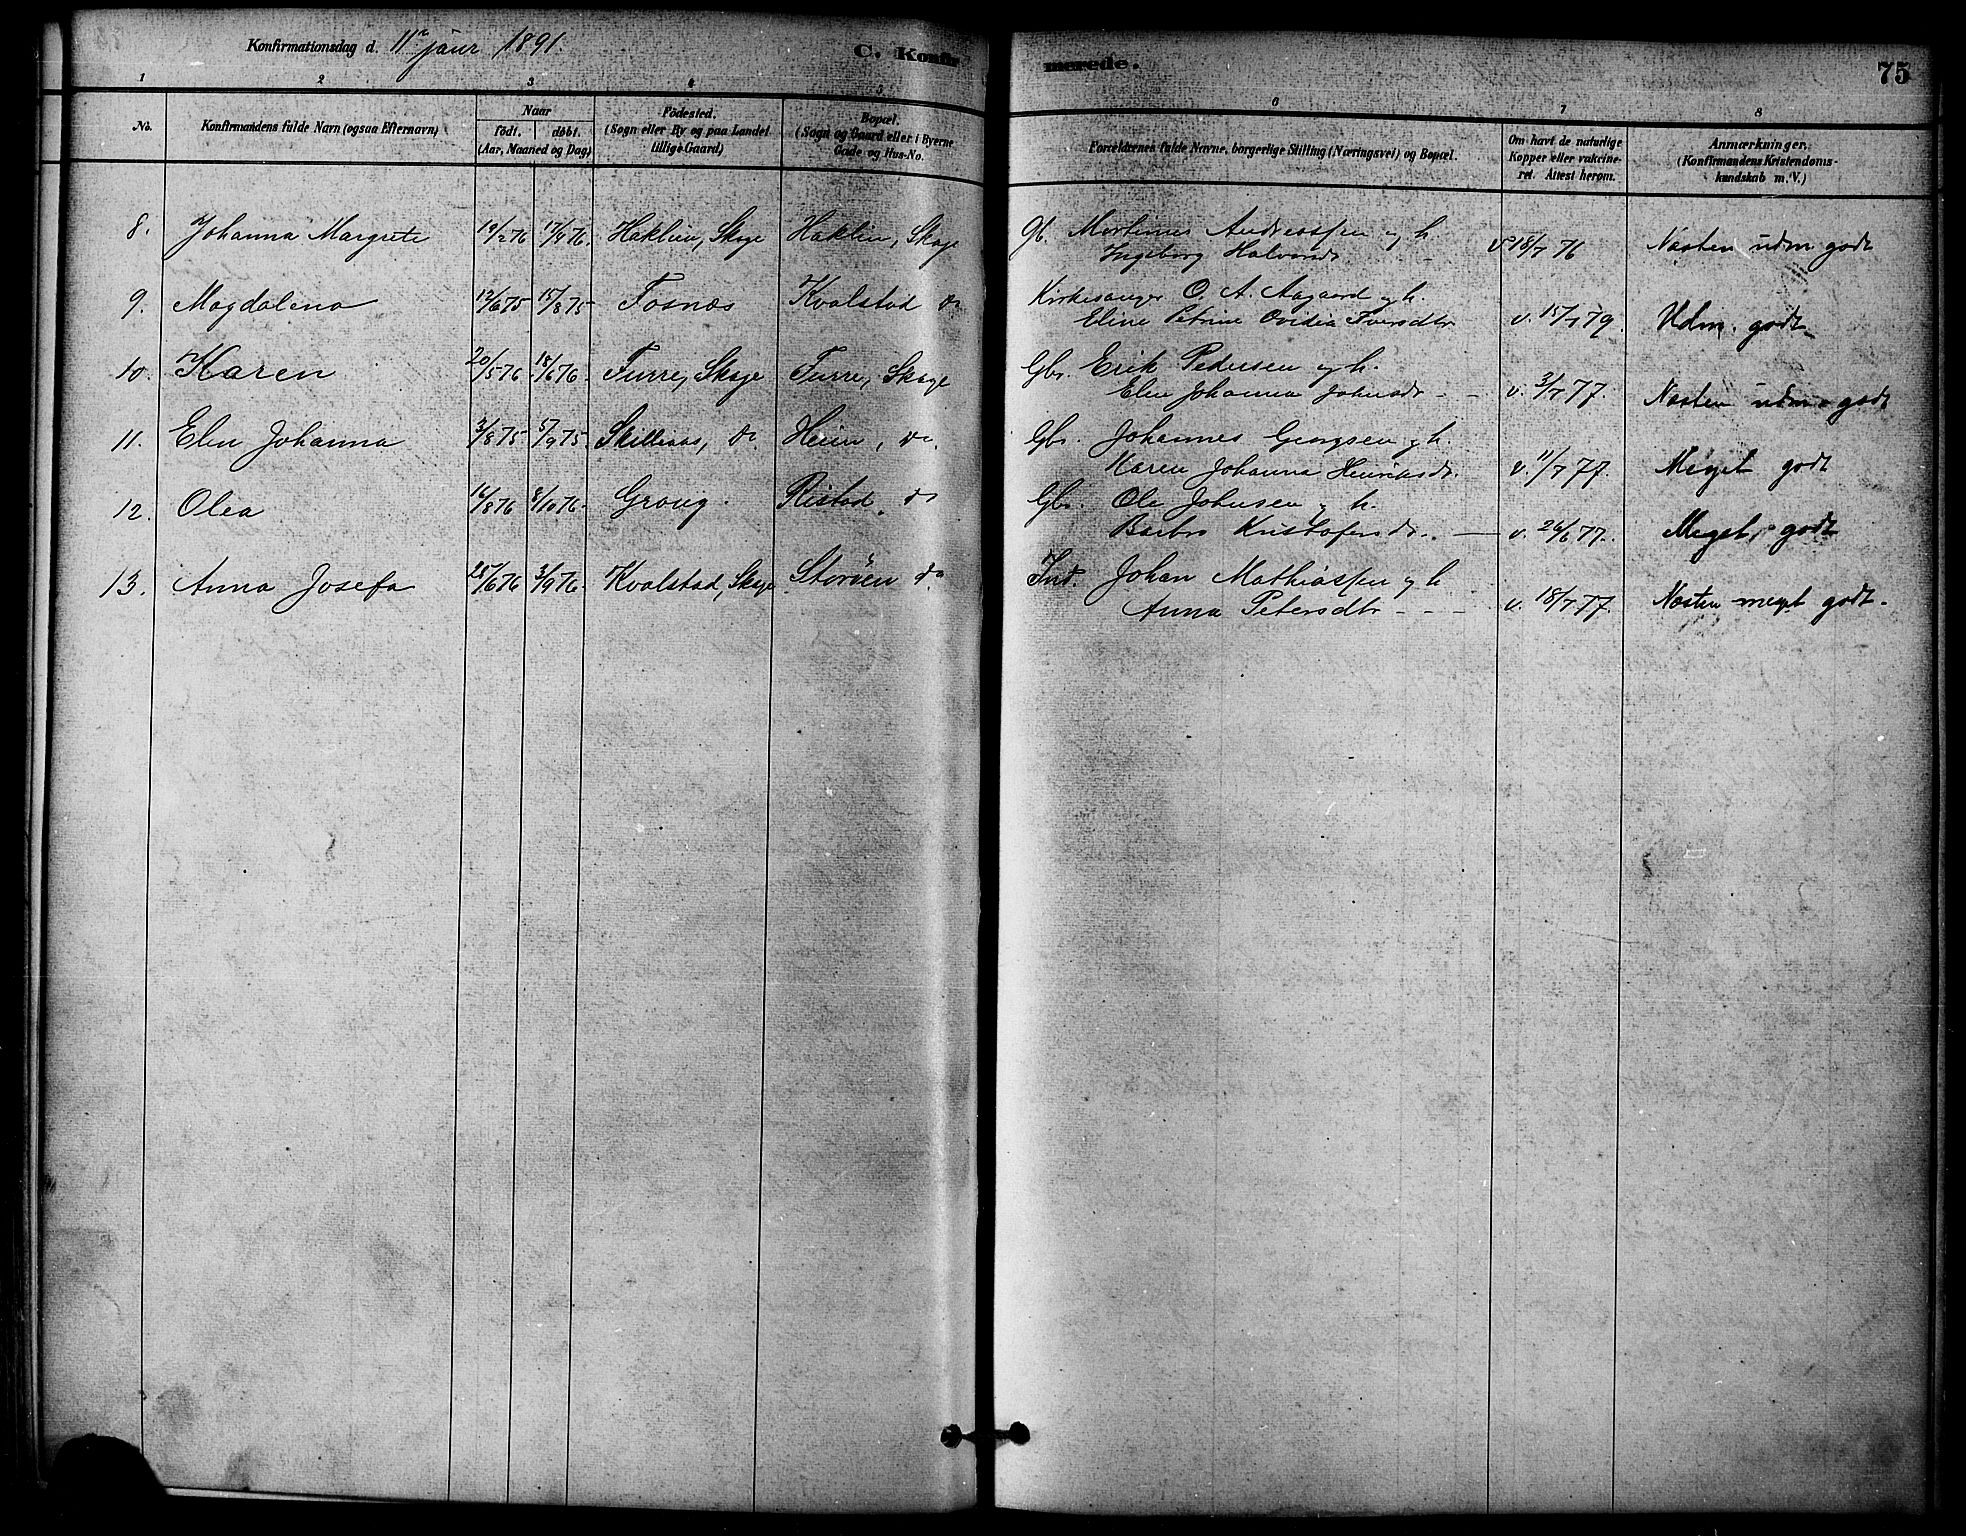 Konfirmationsdag d. 11te januar 1891.
C. Konfirmerede.
75
1 2 3 4 5 6 7 8
No.
Konfirmandens fulde Navn (ogsaa Efternavn)
Naar
født. døbt.
(Aar, Maaned og Dag)
Fødested.
(Sogn eller By og paa Landet
tillige Gaard)
Bopæl.
(Sogn og Gaard eller i Byerne
Gade og Hus-No.
Forældrenes fulde Navne, borgerlige Stilling (Næringsvei) og Bopæl.
Om havt de naturlige
Kopper eller vakcine-
ret. Attest herom.
Anmærkninger.
(Konfirmandens Kristendoms-
kundskab m. V.)
8. Johanna Margrete 14/2 76 17/4 76. Haklien, Skage Haklien, Skage Gb. Mortinus Andreassen og h.
Ingeborg Halvorsd. v. 18/7 76 Næsten udm godt
9. Magdalena 12/6 75 15/8 75 Fosnæs Kvalstad do Kirkesanger O. A. Aagaard og h.
Eline Petrine Ovidia Iversdtr v. 15/7 79. Udm. godt
10. Karen 20/5 76 18/6 76. Furre, Skage Furre, Skage Gbr. Erik Pedersen og h.
Elen Johanna Johnsdr - - v. 3/7 77. Næsten udm. godt
11. Elen Johanna 3/8 75 5/9 75 Skilleaas, do Heim, do. Gbr. Johannes Georgsen og h.
Karen Johanna Henriksdr. v. 11/7 77. Meget godt
12. Olea 16/8 76 8/10 76. Grong. Ristad, do Gbr. Ole Johnsen og h.
Barbro Kristofersdr. - v. 26/6 77. Meget godt
13. Anna Josefa 25/6 76 3/9 76. Kvalstad, Skage Storöen do Ind. Johan Mathiassen og h
Anna Petersdtr - - - v. 18/7 77. Næsten meget godt.